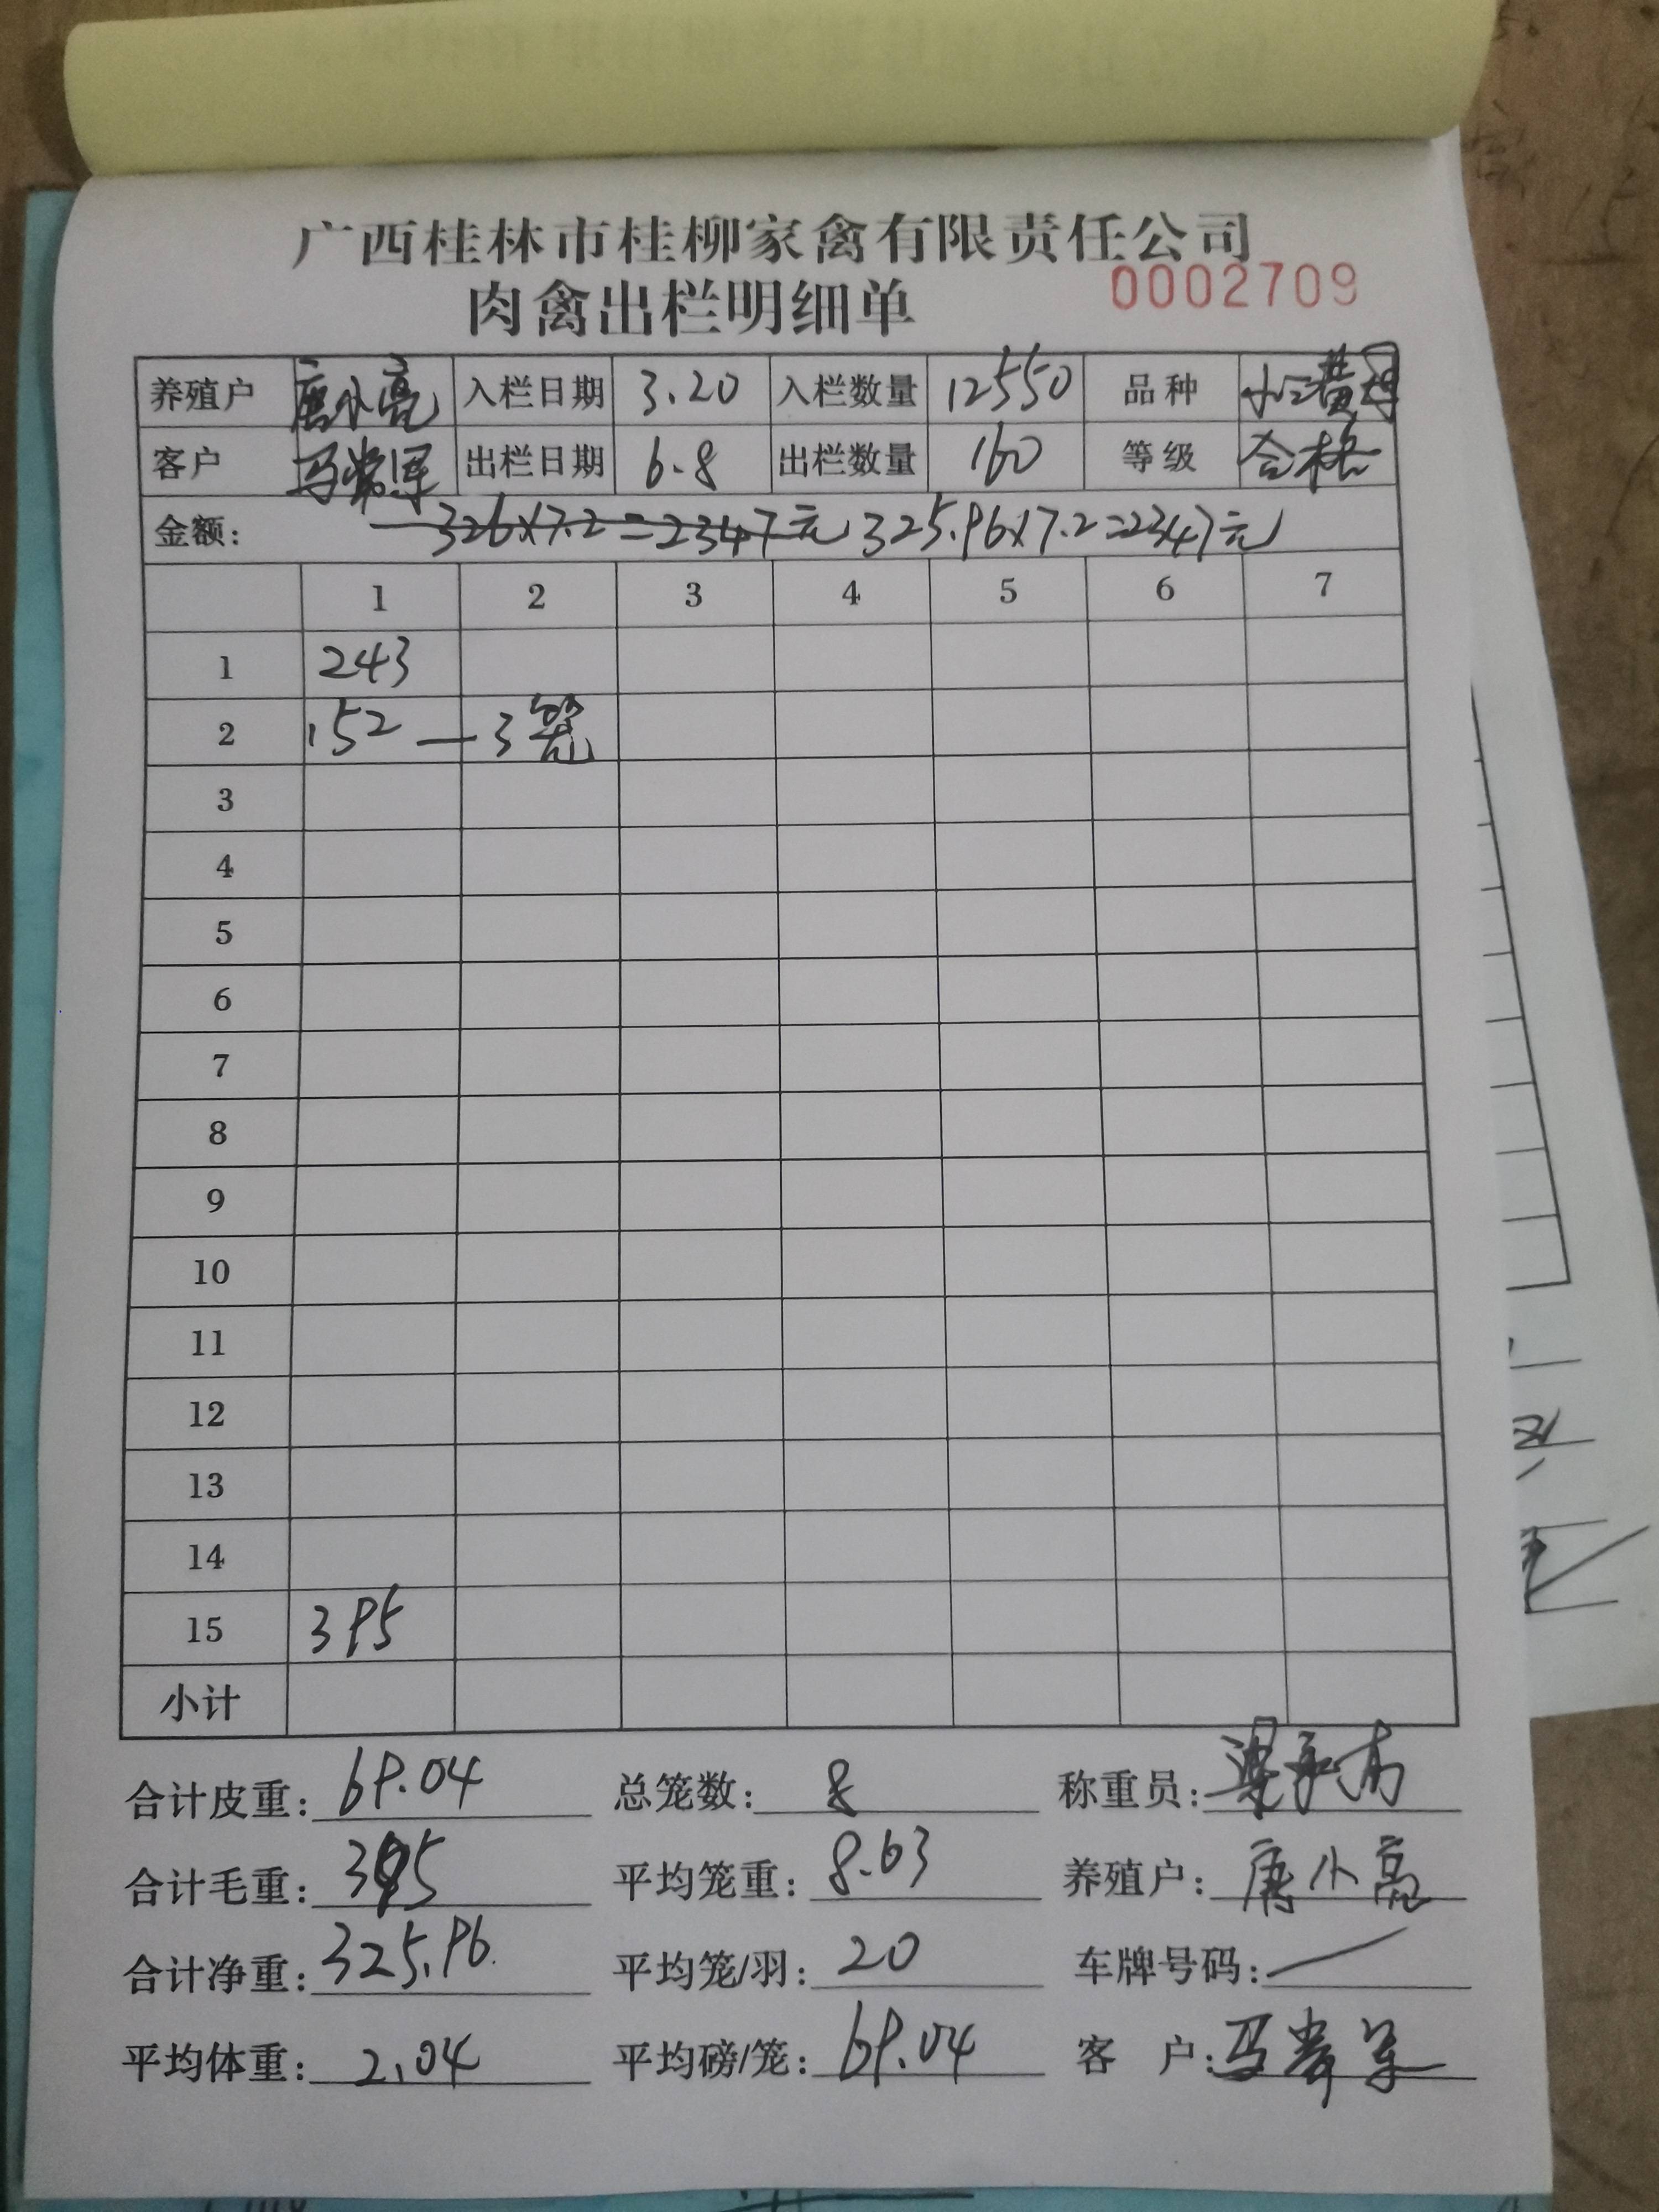 广西桂林市桂柳家禽有限责任公司
肉禽出栏明细单 0002709
养殖户 唐小亮 入栏日期 3.20 入栏数量 12550 品种
客户 出栏日期 6.8 出栏数量 160 等级 合格
金额: 326×7.2=2347元 325.96×7.2=2347元
1 2 3 4 5 6 7
1 243
2 152 — 3笼
3
4
5
6
7
8
9
10
11
12
13
14
15 395
小计
合计皮重: 69.04 总笼数: 8 称重员:
合计毛重: 395 平均笼重: 8.63 养殖户: 唐小亮
合计净重: 325.96. 平均笼/羽: 20 车牌号码: —
平均体重: 2.04 平均磅/笼: 69.04 客 户: